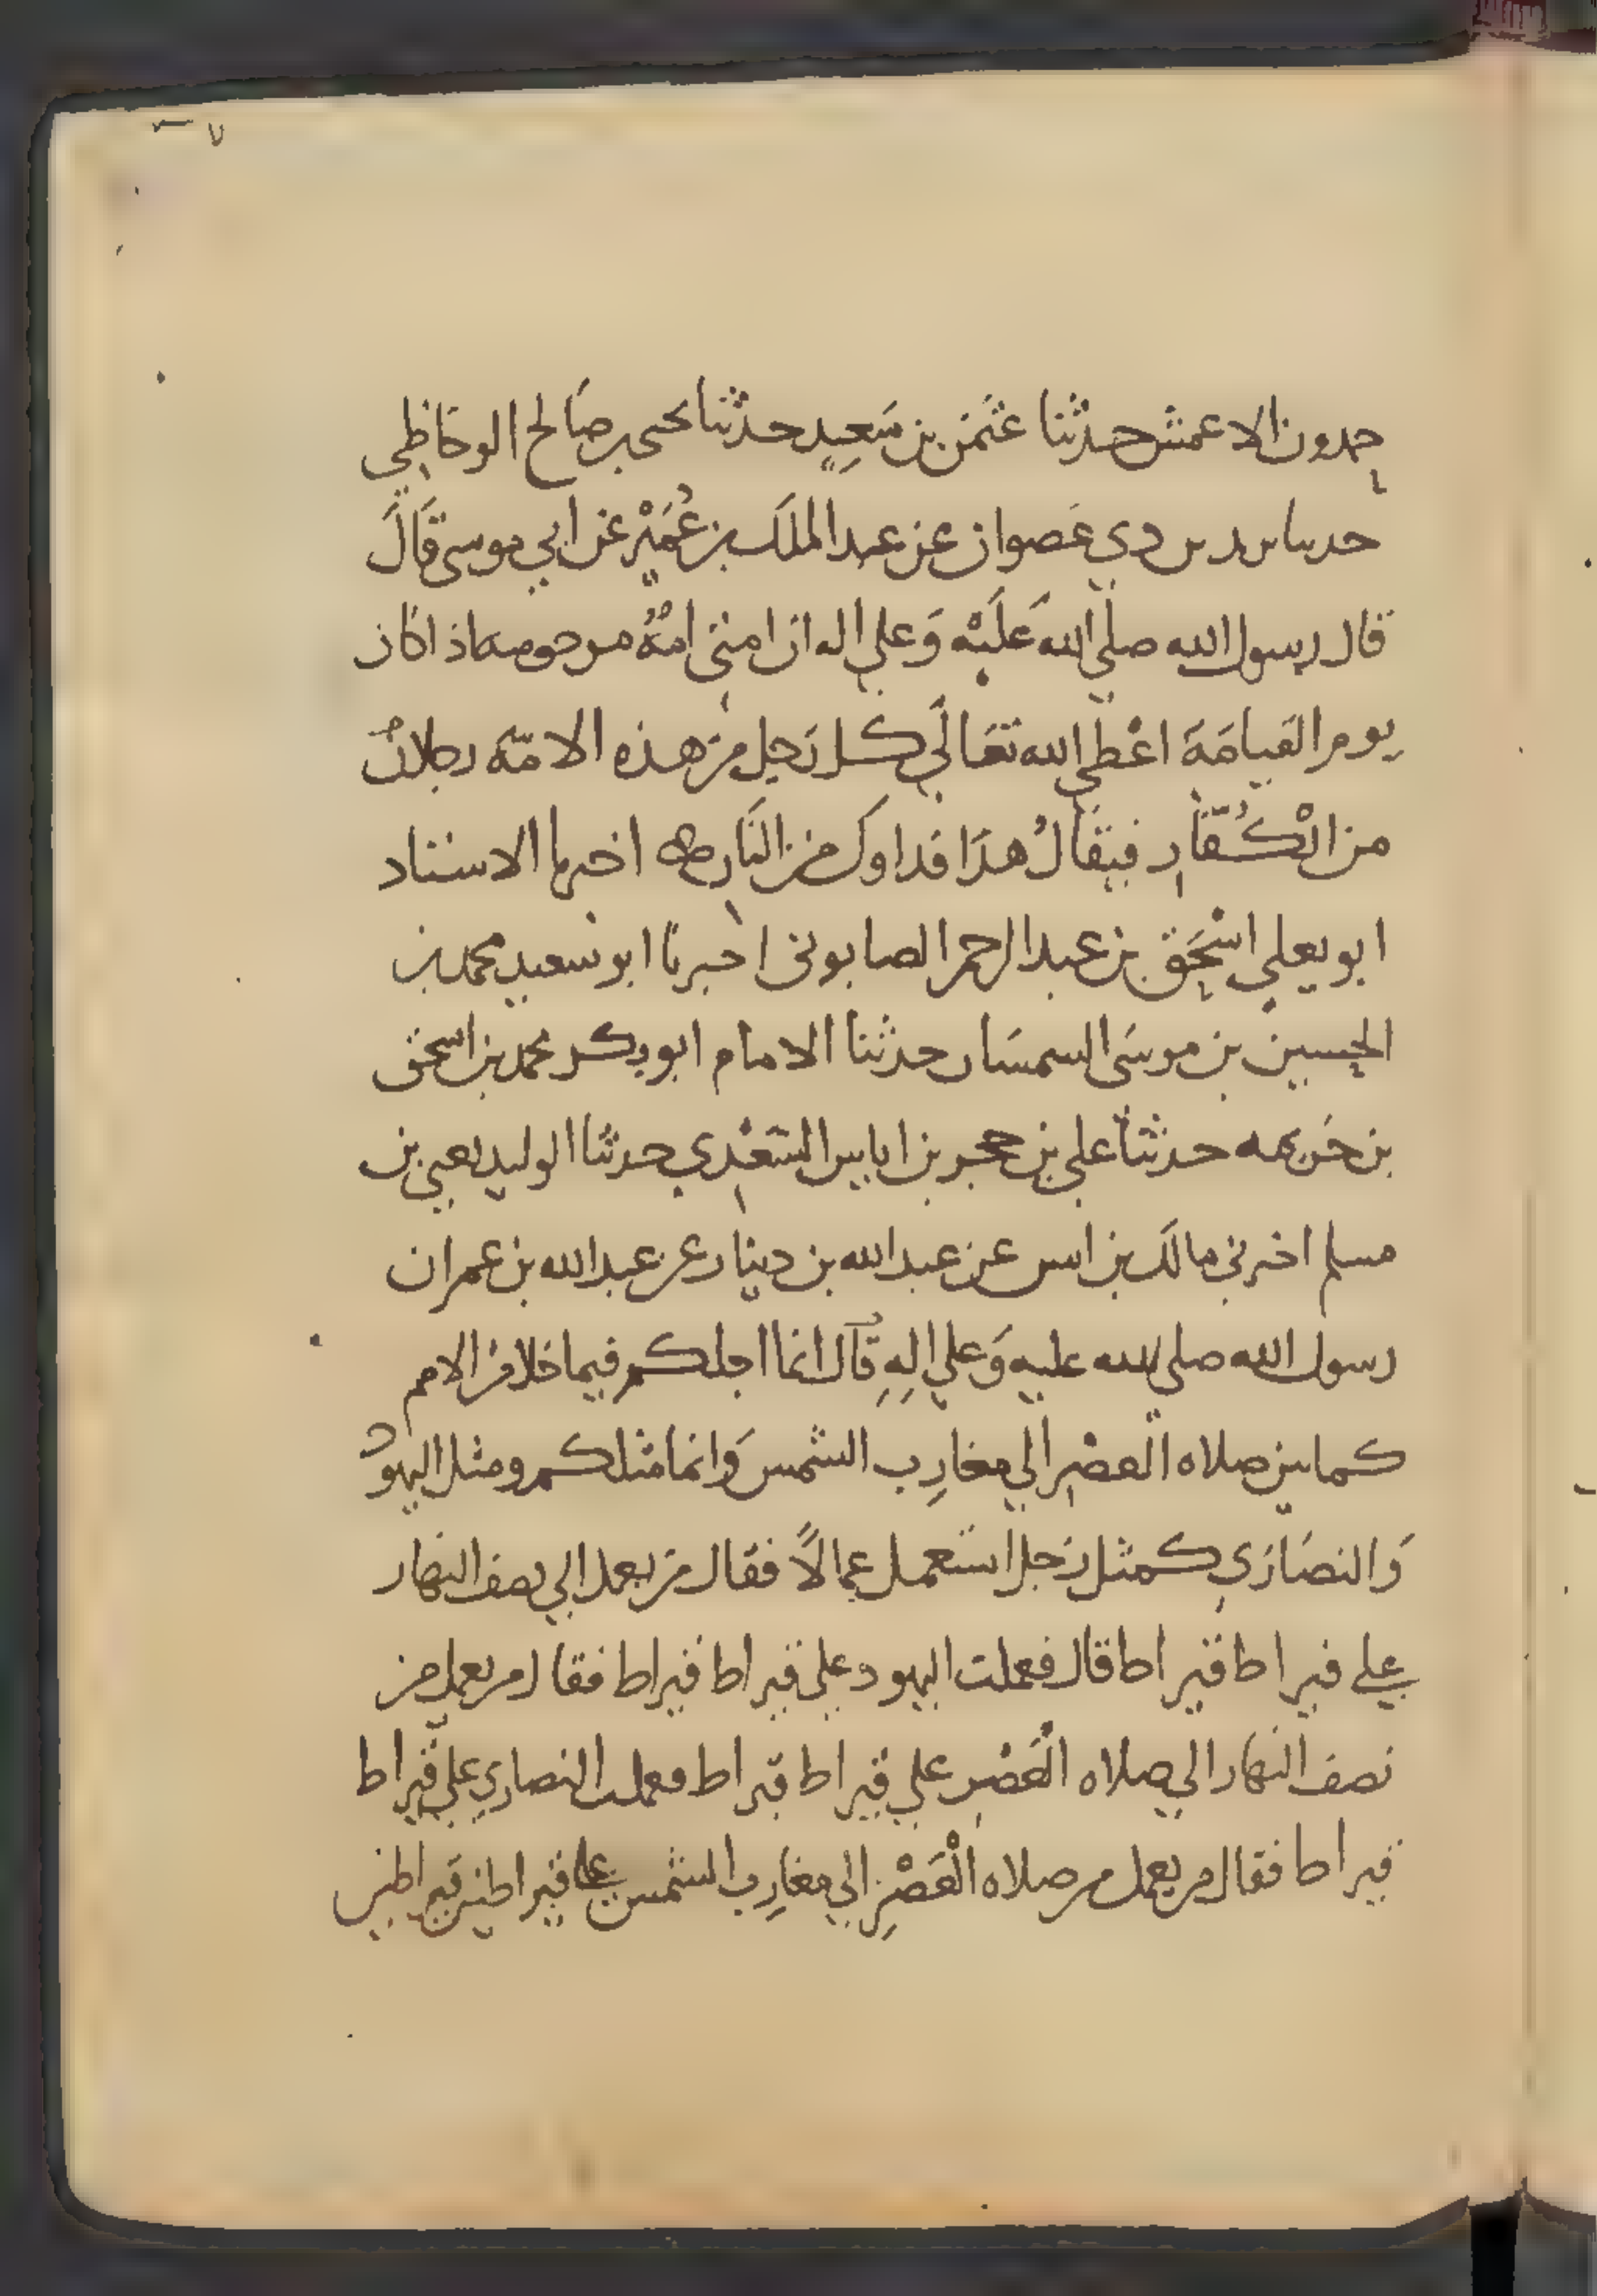 ٧
حمدون الاعمش حدثنا عثمن بن سَعِيدٍ حدثنا يحيى بن صَالح الوحَاظِي
حدثنا يزيد بن ذي عَصوان عن عبد الملَك بن عُمَيْر عن ابي موسى قَالَ
قال رسول الله صلي الله عَلَيْه وَعلي اله ان امتي امةٌ مرحومه اذا كان
يوم القيامَةَ اعْطي الله تعَالَي كل رَجل من هذه الامّه رجلانٌ
من الْكُفّار فيقَالُ هذَا فداوك من النَّار ه اخبرنا الاستاد
ابو يعلي اسْحَق بن عبد الرحمن الصابوني اخبرنا ابو سعيد محمد بن
الحسين بن موسَى السمسَار حدثنا الامام ابو بكر محمد بن اسحق
بن خُزيمه حدثنا علي بن حجر بن اياس السّعْدي حدثنا الوليد يعني بن
مسلم اخبرني مالك بن انس عن عبد الله بن دينار عن عبد الله بن عمر ان
رسول الله صلي الله عليه وَعلي الِهِ قال انما اجلكم فيما خلا من الامم
كما بين صلاه العصْر الي مغارِب الشمس وَانما مثلكم ومثل اليهود
وَالنصَارَي كمثل رَجل استعمل عمالًا فقال من يعمل الي نصف النهار
علي قيراط قيراط قال فعملت اليهود علي قيراط قيراط فقال من يعمل من
نصف النهار الي صلاه الْعَصْر علي قيراط قيراط فعملت النصاري علي قيراط
قيراط فقال من يعمل من صلاه الْعَصْرِ الي مغارِب الشمس علي قيراطين قيراطين